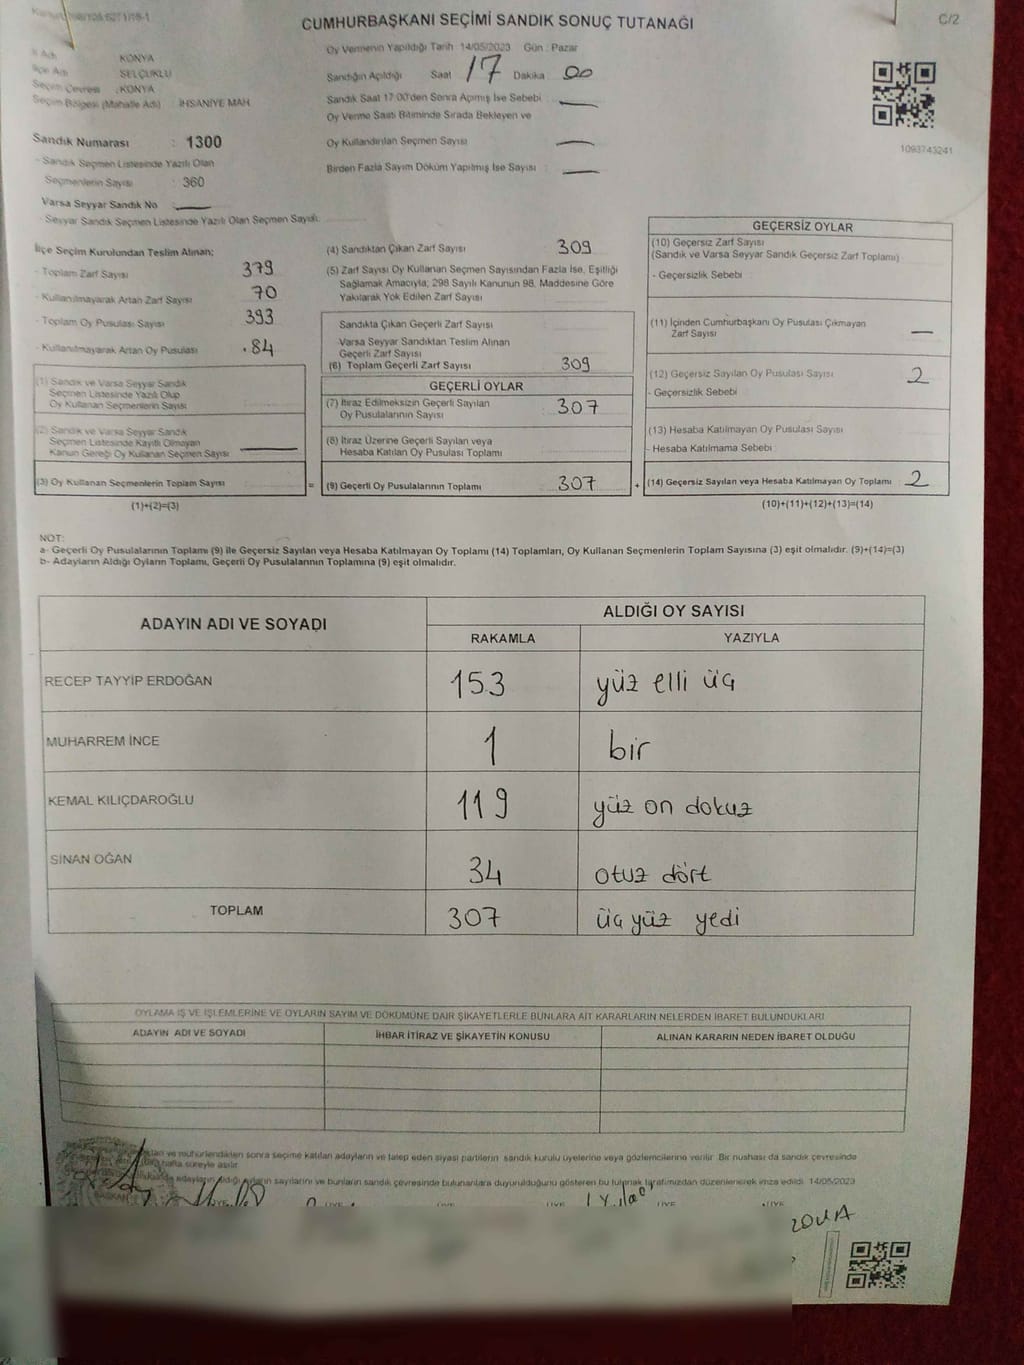 CUMHURBAŞKANI SEÇİMİ SANDIK SONUÇ TUTANAĞI
C/2
İl Adı KONYA
İlçe Adı SELÇUKLU
Seçim Çevresi : KONYA
Seçim Bölgesi (Mahalle Adı) : İHSANİYE MAH
Sandık Numarası : 1300
- Sandık Seçmen Listesinde Yazılı Olan
Seçmenlerin Sayısı : 360
Varsa Seyyar Sandık No
- Seyyar Sandık Seçmen Listesinde Yazılı Olan Seçmen Sayısı:
Oy Vermenin Yapıldığı Tarih 14/05/2023 Gün : Pazar
Sandığın Açıldığı Saat 17 Dakika 00
Sandık Saat 17:00'den Sonra Açılmış İse Sebebi : —
Oy Verme Saati Bitiminde Sırada Bekleyen ve
Oy Kullandırılan Seçmen Sayısı —
Birden Fazla Sayım Döküm Yapılmış İse Sayısı : —
1093743241
İlçe Seçim Kurulundan Teslim Alınan;
- Toplam Zarf Sayısı 379
- Kullanılmayarak Artan Zarf Sayısı 70
- Toplam Oy Pusulası Sayısı 393
- Kullanılmayarak Artan Oy Pusulası .84
(1) Sandık ve Varsa Seyyar Sandık
Seçmen Listesinde Yazılı Olup
Oy Kullanan Seçmenlerin Sayısı
(2) Sandık ve Varsa Seyyar Sandık
Seçmen Listesinde Kayıtlı Olmayan
Kanun Gereği Oy Kullanan Seçmen Sayısı
(3) Oy Kullanan Seçmenlerin Toplam Sayısı
(1)+(2)=(3)
=
(4) Sandıktan Çıkan Zarf Sayısı 309
(5) Zarf Sayısı Oy Kullanan Seçmen Sayısından Fazla İse, Eşitliği
Sağlamak Amacıyla; 298 Sayılı Kanunun 98. Maddesine Göre
Yakılarak Yok Edilen Zarf Sayısı
Sandıkta Çıkan Geçerli Zarf Sayısı
Varsa Seyyar Sandıktan Teslim Alınan
Geçerli Zarf Sayısı
(6) Toplam Geçerli Zarf Sayısı 309
GEÇERLİ OYLAR
(7) İtiraz Edilmeksizin Geçerli Sayılan
Oy Pusulalarının Sayısı 307
(8) İtiraz Üzerine Geçerli Sayılan veya
Hesaba Katılan Oy Pusulası Toplamı
(9) Geçerli Oy Pusulalarının Toplamı 307
+
GEÇERSİZ OYLAR
(10) Geçersiz Zarf Sayısı
(Sandık ve Varsa Seyyar Sandık Geçersiz Zarf Toplamı)
- Geçersizlik Sebebi
(11) İçinden Cumhurbaşkanı Oy Pusulası Çıkmayan
Zarf Sayısı —
(12) Geçersiz Sayılan Oy Pusulası Sayısı 2
- Geçersizlik Sebebi
(13) Hesaba Katılmayan Oy Pusulası Sayısı
- Hesaba Katılmama Sebebi
(14) Geçersiz Sayılan veya Hesaba Katılmayan Oy Toplamı : 2
(10)+(11)+(12)+(13)=(14)
NOT:
a- Geçerli Oy Pusulalarının Toplamı (9) ile Geçersiz Sayılan veya Hesaba Katılmayan Oy Toplamı (14) Toplamları, Oy Kullanan Seçmenlerin Toplam Sayısına (3) eşit olmalıdır. (9)+(14)=(3)
b- Adayların Aldığı Oyların Toplamı, Geçerli Oy Pusulalarının Toplamına (9) eşit olmalıdır.
ADAYIN ADI VE SOYADI
ALDIĞI OY SAYISI
RAKAMLA YAZIYLA
RECEP TAYYİP ERDOĞAN 153 yüz elli üç
MUHARREM İNCE 1 bir
KEMAL KILIÇDAROĞLU 119 yüz on dokuz
SİNAN OĞAN 34 otuz dört
TOPLAM 307 üç yüz yedi
OYLAMA İŞ VE İŞLEMLERİNE VE OYLARIN SAYIM VE DÖKÜMÜNE DAİR ŞİKAYETLERLE BUNLARA AİT KARARLARIN NELERDEN İBARET BULUNDUKLARI
ADAYIN ADI VE SOYADI İHBAR İTİRAZ VE ŞİKAYETİN KONUSU ALINAN KARARIN NEDEN İBARET OLDUĞU
ve mühürlendikten sonra seçime katılan adayların ve talep eden siyasi partilerin sandık kurulu üyelerine veya gözlemcilerine verilir. Bir nüshası da sandık çevresinde
hafta süreyle asılır
adayların aldığı oyların sayılarını ve bunların sandık çevresinde bulunanlara duyurulduğunu gösteren bu tutanak tarafımızdan düzenlenerek imza edildi. 14/05/2023
BAŞKAN ÜYE ÜYE ÜYE ÜYE